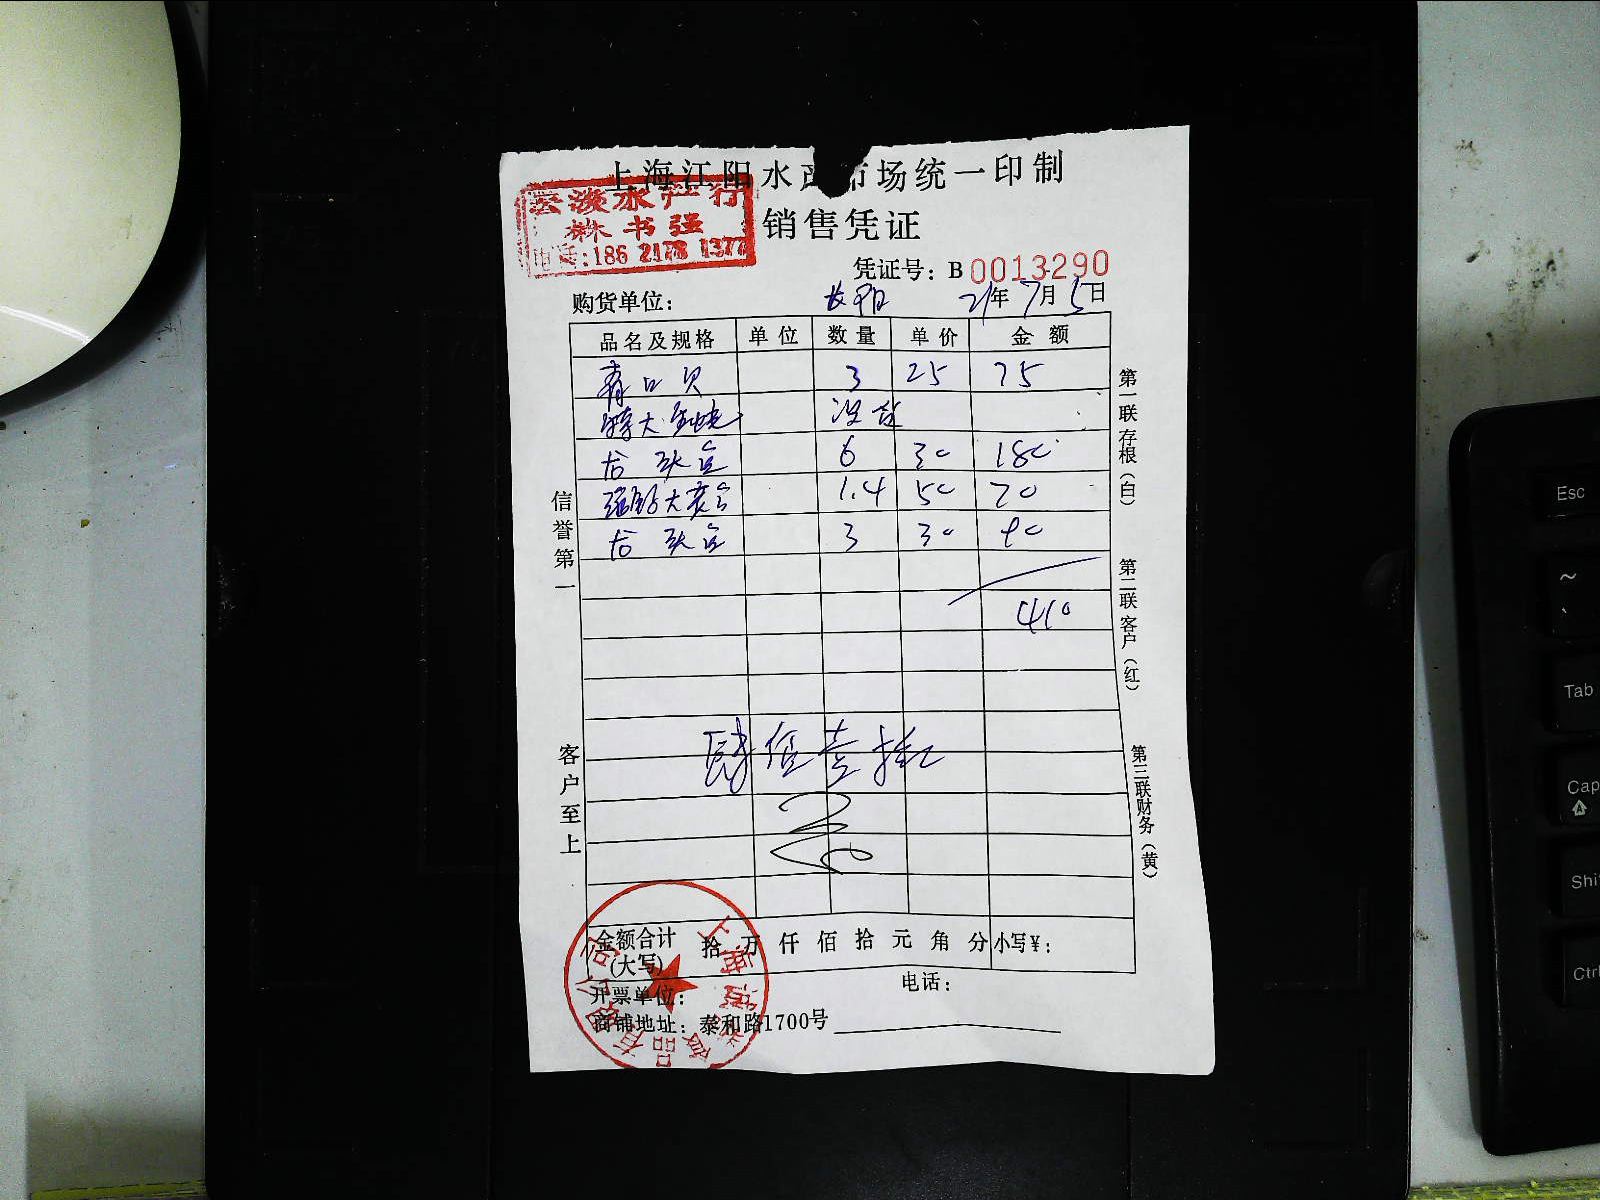 上海江阳水产市场统一印制
云淡水产行
林书强
电话:186 2178 1377
销售凭证
凭证号: B 0013290
购货单位: 长阳 21年7月5日
品名及规格 单位 数量 单价 金额
青口贝 3 25 75
特大 没有
龙头鱼 6 30 180
大 1.4 50 70
龙头鱼 3 30 90
410
肆佰壹拾
信誉第一
客户至上
第一联存根(白)
第二联客户(红)
第三联财务(黄)
金额合计(大写) 拾 万 仟 佰 拾 元 角 分 小写¥:
开票单位: 电话:
商铺地址: 泰和路1700号
上海 品有 公司
Esc
~
`
Tab
Cap
Shi
Ctrl